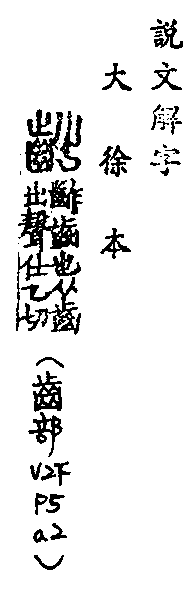 說文解字
大徐本
齚齒也从齒
出聲仕乙切
（齒部V2F P5 a2）